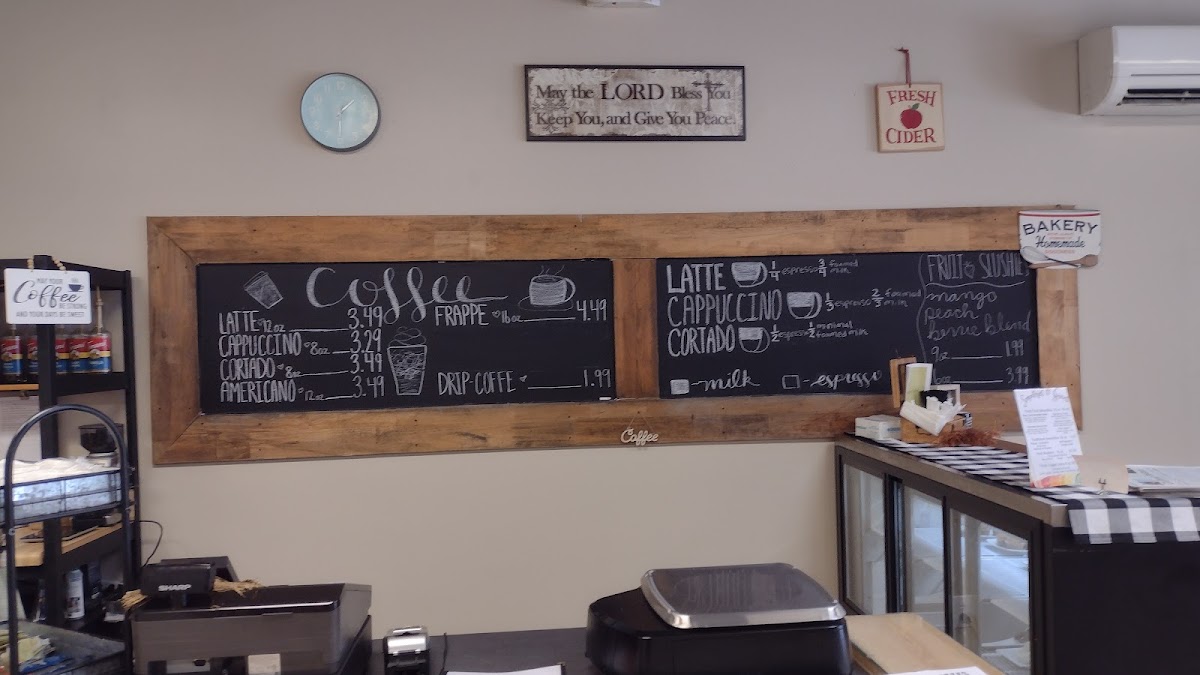 May the LORD Bless You
Keep You, and Give You Peace.
FRESH
CIDER
BAKERY
Homemade
Coffee
LATTE 12oz 3.49
CAPPUCCINO 8oz 3.29
CORTADO 8oz 3.49
AMERICANO 12oz 3.49
FRAPPE 16oz 4.49
DRIP-COFFE 1.99
LATTE 1/4 espresso 3/4 foamed milk
CAPPUCCINO 1/3 espresso 2/3 foamed milk
CORTADO 1/2 espresso 1/2 foamed milk
-milk -espresso
FRUIT SLUSHIE
mango
peach
berrie blend
9oz 1.99
3.99
MAY YOUR
Coffee
BE STRONG
AND YOUR DAYS BE SWEET
Coffee
SHARP
4